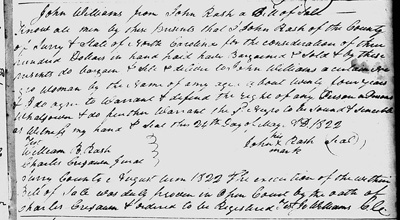 John Williams from John Rash a Bill of Sale
Know all men by these presents that I John Rash of the County
of Surry & State of North Carolina for the consideration of three
hundred Dollars in hand paid have Bargained & Sold & by these
presents do bargain & Sell & deliver to John Williams a certain
gro woman by the name of any age about twenty four years
& I do agree to Warrant & defend the right of any Person or Persons
Whatsoever & do further Warrant the Sd Negro to be Sound & Sensible
as Witness my hand & Seal this 24th Day of May AD 1822
his
William B. Rash John X Rash (Seal)
Charles Creason Jurat mark
Surry County August Term 1822 The execution of the within
Bill of Sale was duly proven in Open Court by the oath of
Charles Creason & ordered to be Registered Williams Clk